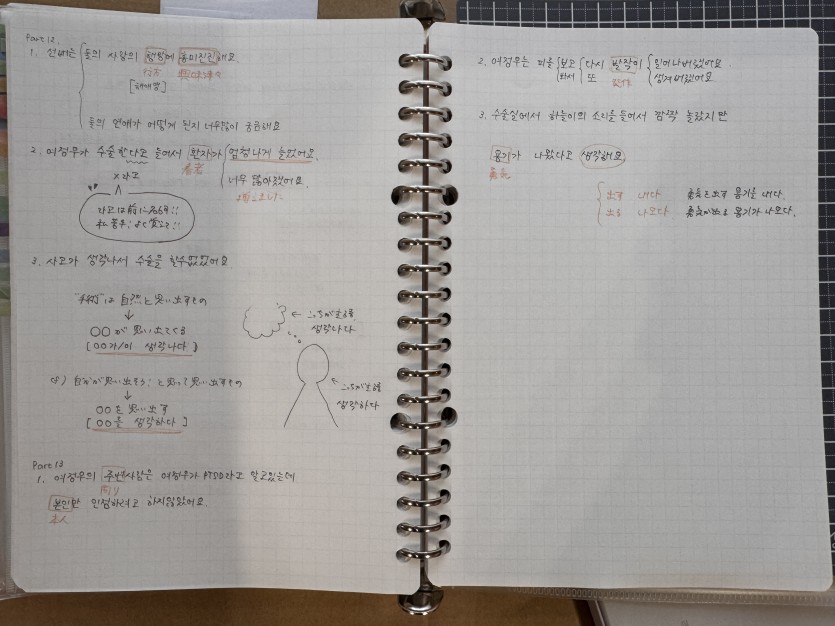 Part 12
1. 선배는 둘의 사랑의 행방에 흥미진진해요.
行方 興味津々
둘의 연애가 어떻게 된지 너무많이 궁금해요
2. 여정우가 수술한다고 들어서 환자가 엄청나게 늘었어요.
×라고
患者
너무 많아졌어요.
増えました
3. 사고가 생각나서 수술을 할수없었어요.
自然と思い出すもの
↓
〇〇が 思い出てくる
[〇〇가/이 생각나다]
생각나다.
思い出そう!と思って思い出すもの
↓
〇〇を 思い出す
[〇〇을 생각하다]
생각하다
Part 13
1. 여정우의 주변사람은 여정우가 PTSD라고 알고있는데
周り
본인만 인정하려고 하지않았어요.
本人
2. 여정우는 피를 보고 다시 발작이 일어나버렸어요
봐서 또 생겨버렸어요
発作
3. 수술실에서 하늘이의 소리를 들어서 깜짝 놀랐지만
용기가 나왔다고 생각해요.
勇気
出す 내다 勇気を出す 용기를 내다.
出る 나오다 勇気が出る 용기가 나오다.